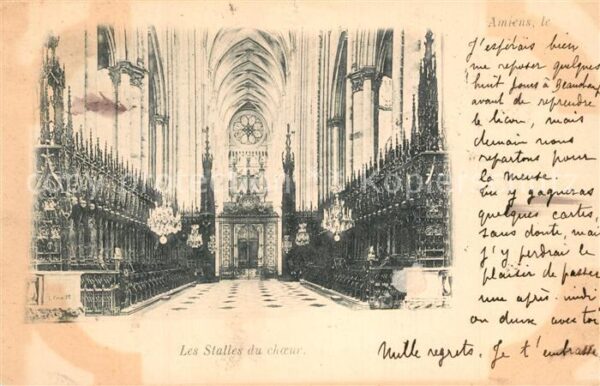 Amiens, le
J'espérais bien
me reposer quelques
huit jours à
avant de reprendre
le licou, mais
demain nous
repartons pour
la meuse.
Tu y gagneras
quelques cartes,
sans doute, mais
j'y perdrai le
plaisir de passer
une après-midi
ou deux avec toi
Mille regrets. Je t'embrasse
Les Stalles du chœur.